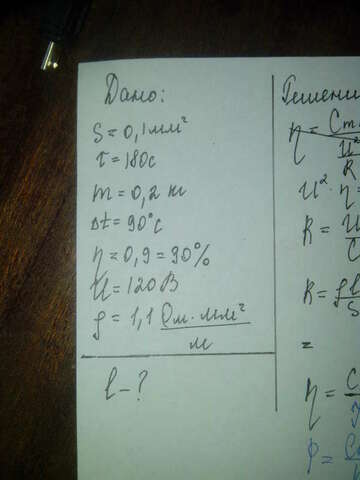 Дано:
S = 0,1 мм²
τ = 180с
m = 0,2 кг
Δt = 90°С
η = 0,9 = 90%
U = 120В
ρ = 1,1 Ом · мм²
м
l - ?
Решени
η = Cm
U²
R
U² · η
R = U
C
R = ρl
S
=
η = C
φ = C